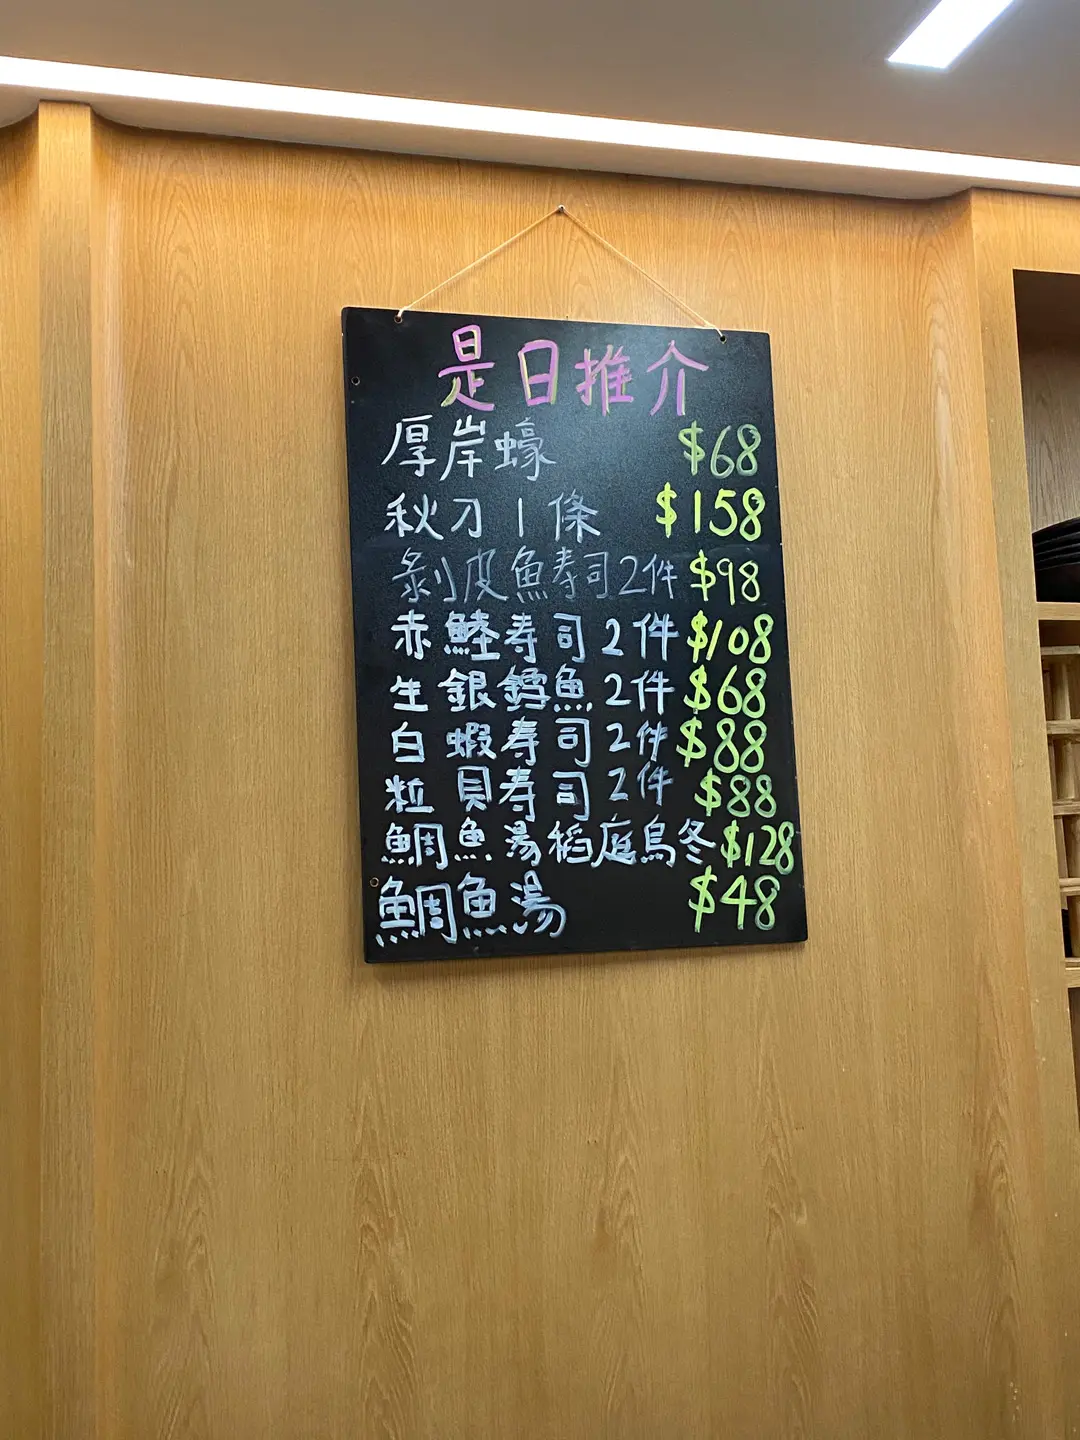 是日推介
厚岸蠔 $68
秋刀1條 $158
剝皮魚寿司2件 $98
赤鯥寿司2件 $108
生銀鱈魚2件 $68
白蝦寿司2件 $88
粒貝寿司2件 $88
鯛魚湯稻庭烏冬 $128
鯛魚湯 $48